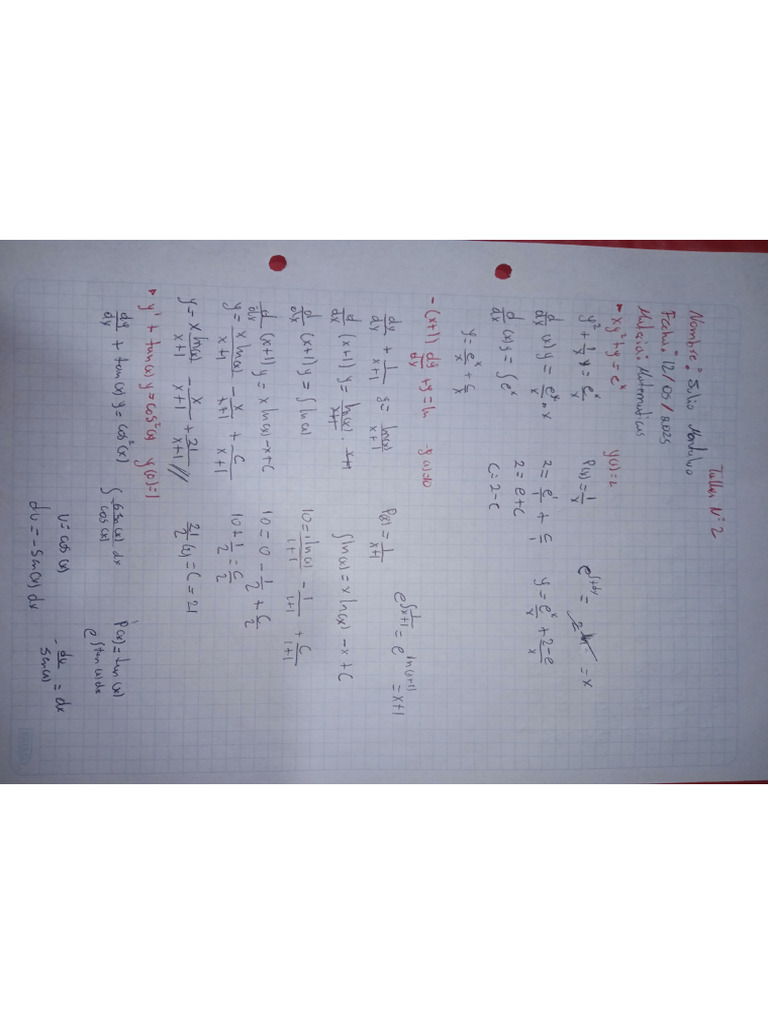 Taller N° 2
Nombre: Julio
Fecha: 12/05/2025
Materia: Matematicas
- xy² + y = eˣ y(1) = 2
y² + 1/x y = eˣ/x P(x) = 1/x e^∫ = = x
d/dx (x) y = eˣ/x · x 2 = e¹/1 + C/1 y = eˣ/x + 2-e/x
d/dx (xy) = ∫ eˣ 2 = e + C
y = eˣ/x + C/x C = 2 - e
- (x+1) dy/dx + y = ln y(1) = 10
dy/dx + 1/x+1 y = ln(x)/x+1 P(x) = 1/x+1 e^∫ 1/x+1 = e^ln(x+1) = x+1
d/dx (x+1) y = ln(x)/x+1 · x+1 ∫ ln(x) = x ln(x) - x + C
d/dx (x+1) y = ∫ ln(x) 10 = 1 ln(x)/1+1 - 1/1+1 + C/1+1
d/dx (x+1) y = x ln(x) - x + C 10 = 0 - 1/2 + C/2
y = x ln(x)/x+1 - x/x+1 + C/x+1 10 + 1/2 = C/2
y = x ln(x)/x+1 - x/x+1 + 21/x+1 // 21/2 (2) = C = 21
- y' + tan(x) y = cos²(x) y(0) = 1
dy/dx + tan(x) y = cos²(x) ∫ sen(x)/cos(x) dx P(x) = tan(x)
e^∫tan(x)dx
u = cos(x) - du/sen(x) = dx
du = - sen(x) dx